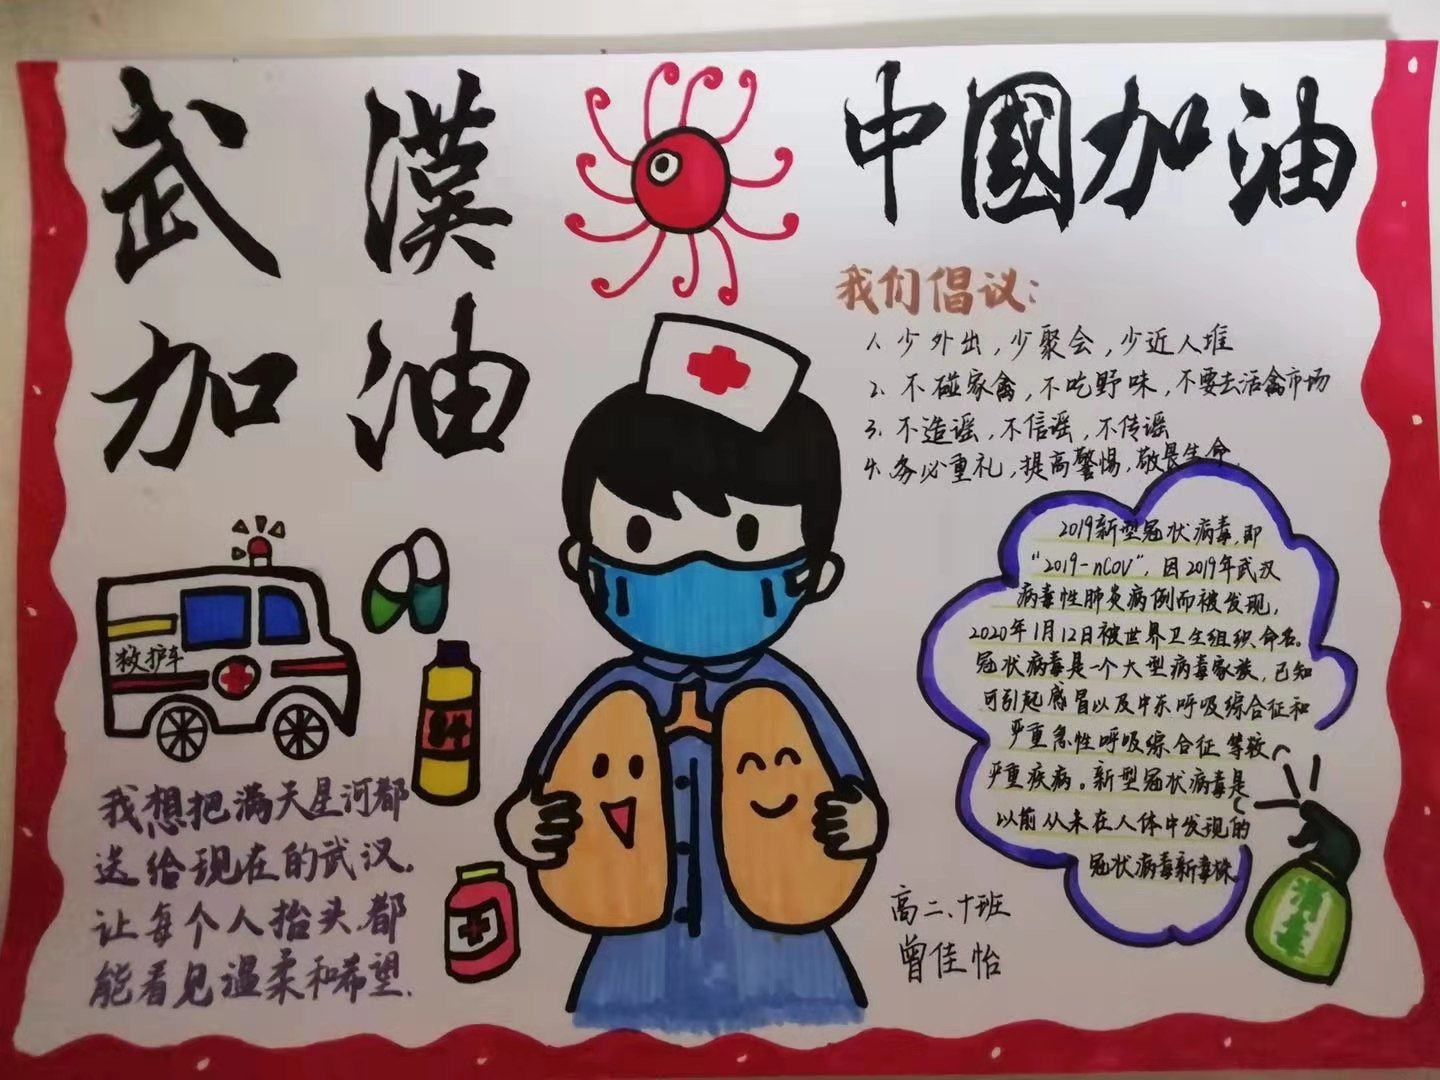 武漢
加油
中國加油
我们倡议:
1. 少外出,少聚会,少近人堆
2. 不碰家禽,不吃野味,不要去活禽市场
3. 不造谣,不信谣,不传谣
4. 务必重礼,提高警惕,敬畏生命.
2019新型冠状病毒,即
“2019-nCOV”,因2019年武汉
病毒性肺炎病例而被发现,
2020年1月12日被世界卫生组织命名。
冠状病毒是一个大型病毒家族,已知
可引起感冒以及中东呼吸综合征和
严重急性呼吸综合征等较
严重疾病。新型冠状病毒是
以前从未在人体中发现的
冠状病毒新毒株。
救护车
84
我想把满天星河都
送给现在的武汉.
让每个人抬头.都
能看见温柔和希望.
高二、十班
曾佳怡
消毒